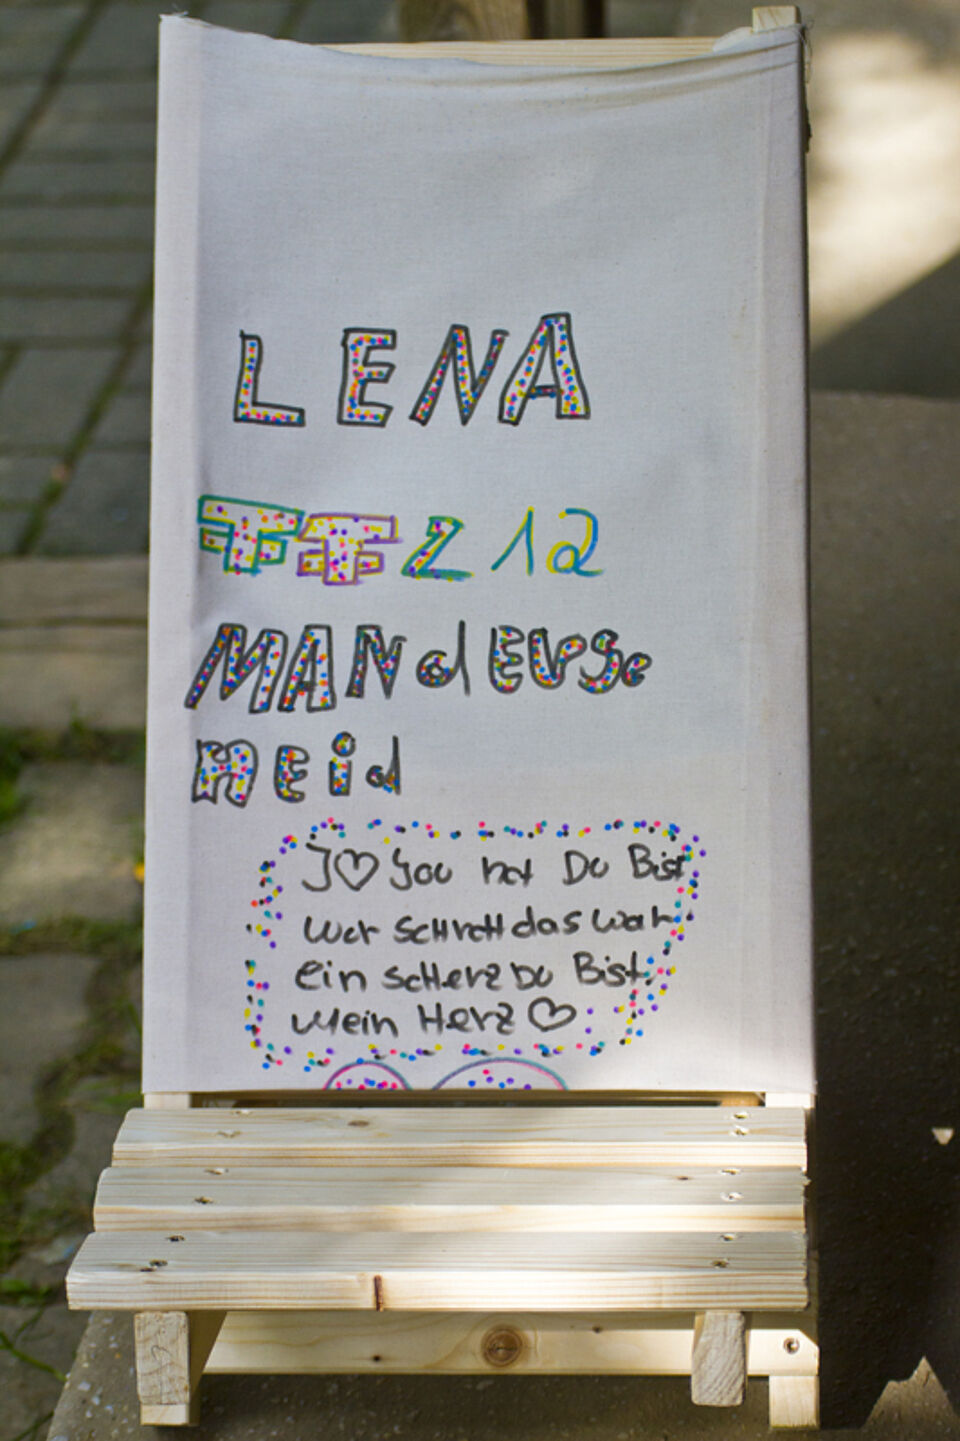 LENA
FFZ 12
MANdERSe
HEid
I ♡ You not Du Bist
wer Schrott das war
ein ScHerz Du Bist
Mein Herz ♡